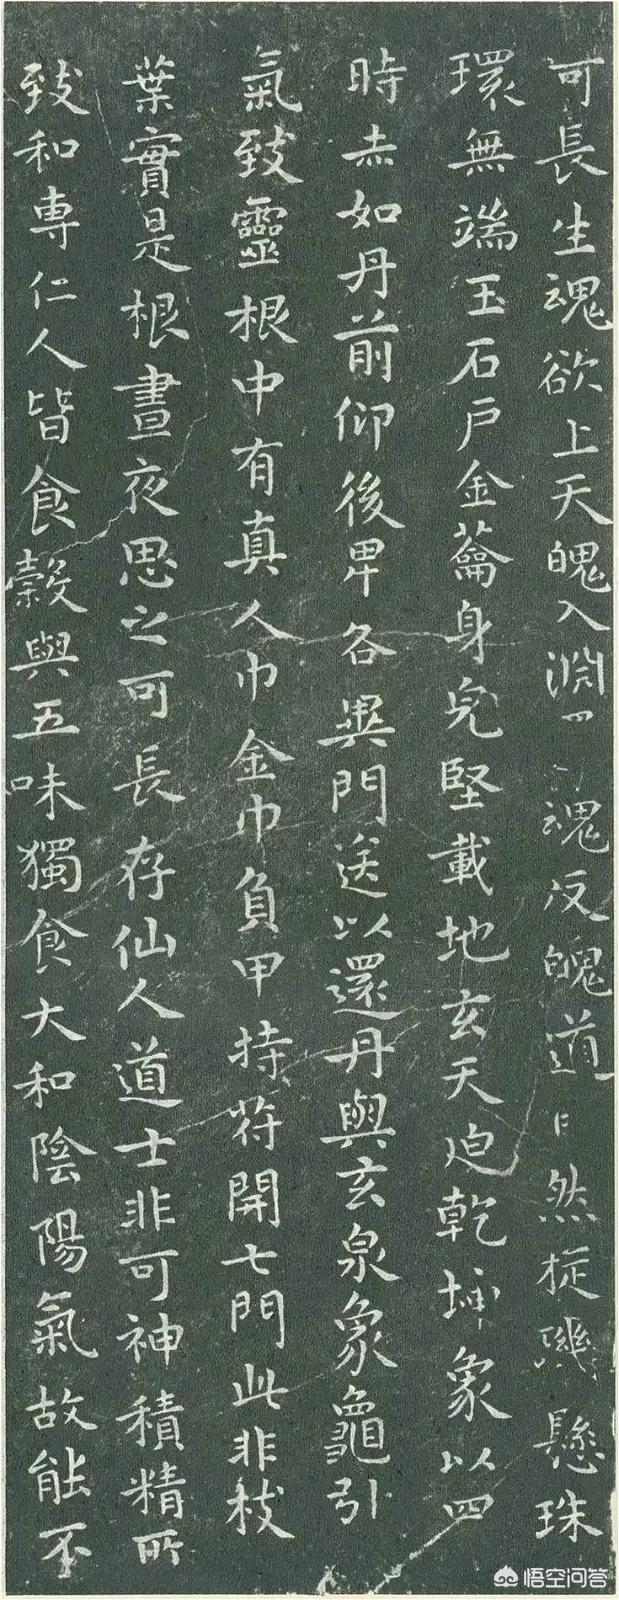 可長生魂欲上天魄入淵 魂反魄道 然旋璣懸珠
環無端玉石戶金蘥身皃堅載地玄天迫乾坤象以四
時赤如丹前仰後卑各異門送以還丹與玄泉象龜引
氣致靈根中有真人巾金巾負甲持苻開七門此非枝
葉實是根晝夜思之可長存仙人道士非可神積精所
致和專仁人皆食穀與五味獨食大和陰陽氣故能不
悟空问答